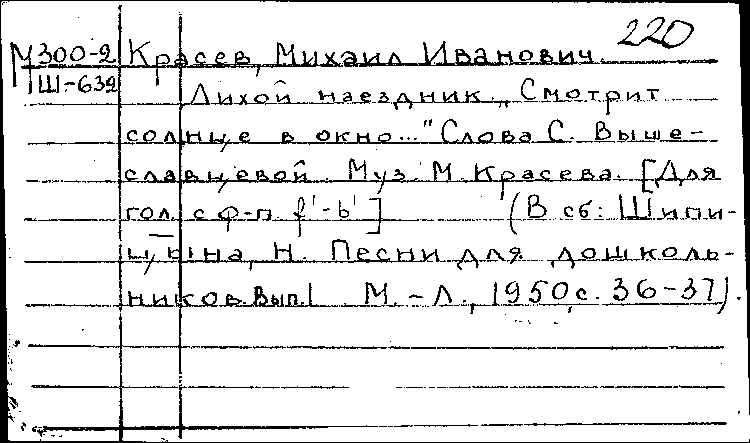 220
М 300-2 Красев, Михаил Иванович.
Ш-632 Лихой наездник. „Смотрит
солнце в окно..." Слова С. Выше-
славцевой. Муз. М. Красева. [Для
гол. с ф-п. f'-b'] (В сб: Шипи-
цына, Н. Песни для дошколь-
ников. Вып. I М.-Л., 1950, с. 36-37).